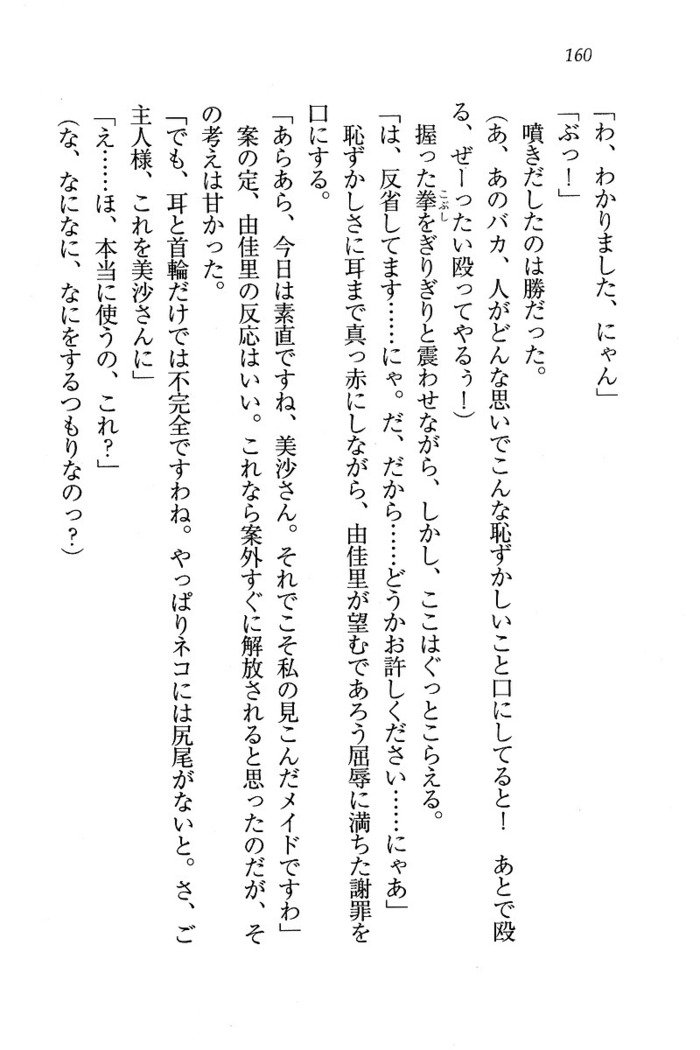 160
「わ、わかりました、にゃん」
「ぶっ！」
　噴きだしたのは勝だった。
（あ、あのバカ、人がどんな思いでこんな恥ずかしいこと口にしてると！　あとで殴
る、ぜーったい殴ってやるぅ！）
　握った拳をぎりぎりと震わせながら、しかし、ここはぐっとこらえる。
こぶし
「は、反省してます……にゃ。だ、だから……どうかお許しください……にゃあ」
　恥ずかしさに耳まで真っ赤にしながら、由佳里が望むであろう屈辱に満ちた謝罪を
口にする。
「あらあら、今日は素直ですね、美沙さん。それでこそ私の見こんだメイドですわ」
　案の定、由佳里の反応はいい。これなら案外すぐに解放されると思ったのだが、そ
の考えは甘かった。
「でも、耳と首輪だけでは不完全ですわね。やっぱりネコには尻尾がないと。さ、ご
主人様、これを美沙さんに」
「え……ほ、本当に使うの、これ？」
（な、なになに、なにをするつもりなのっ？）